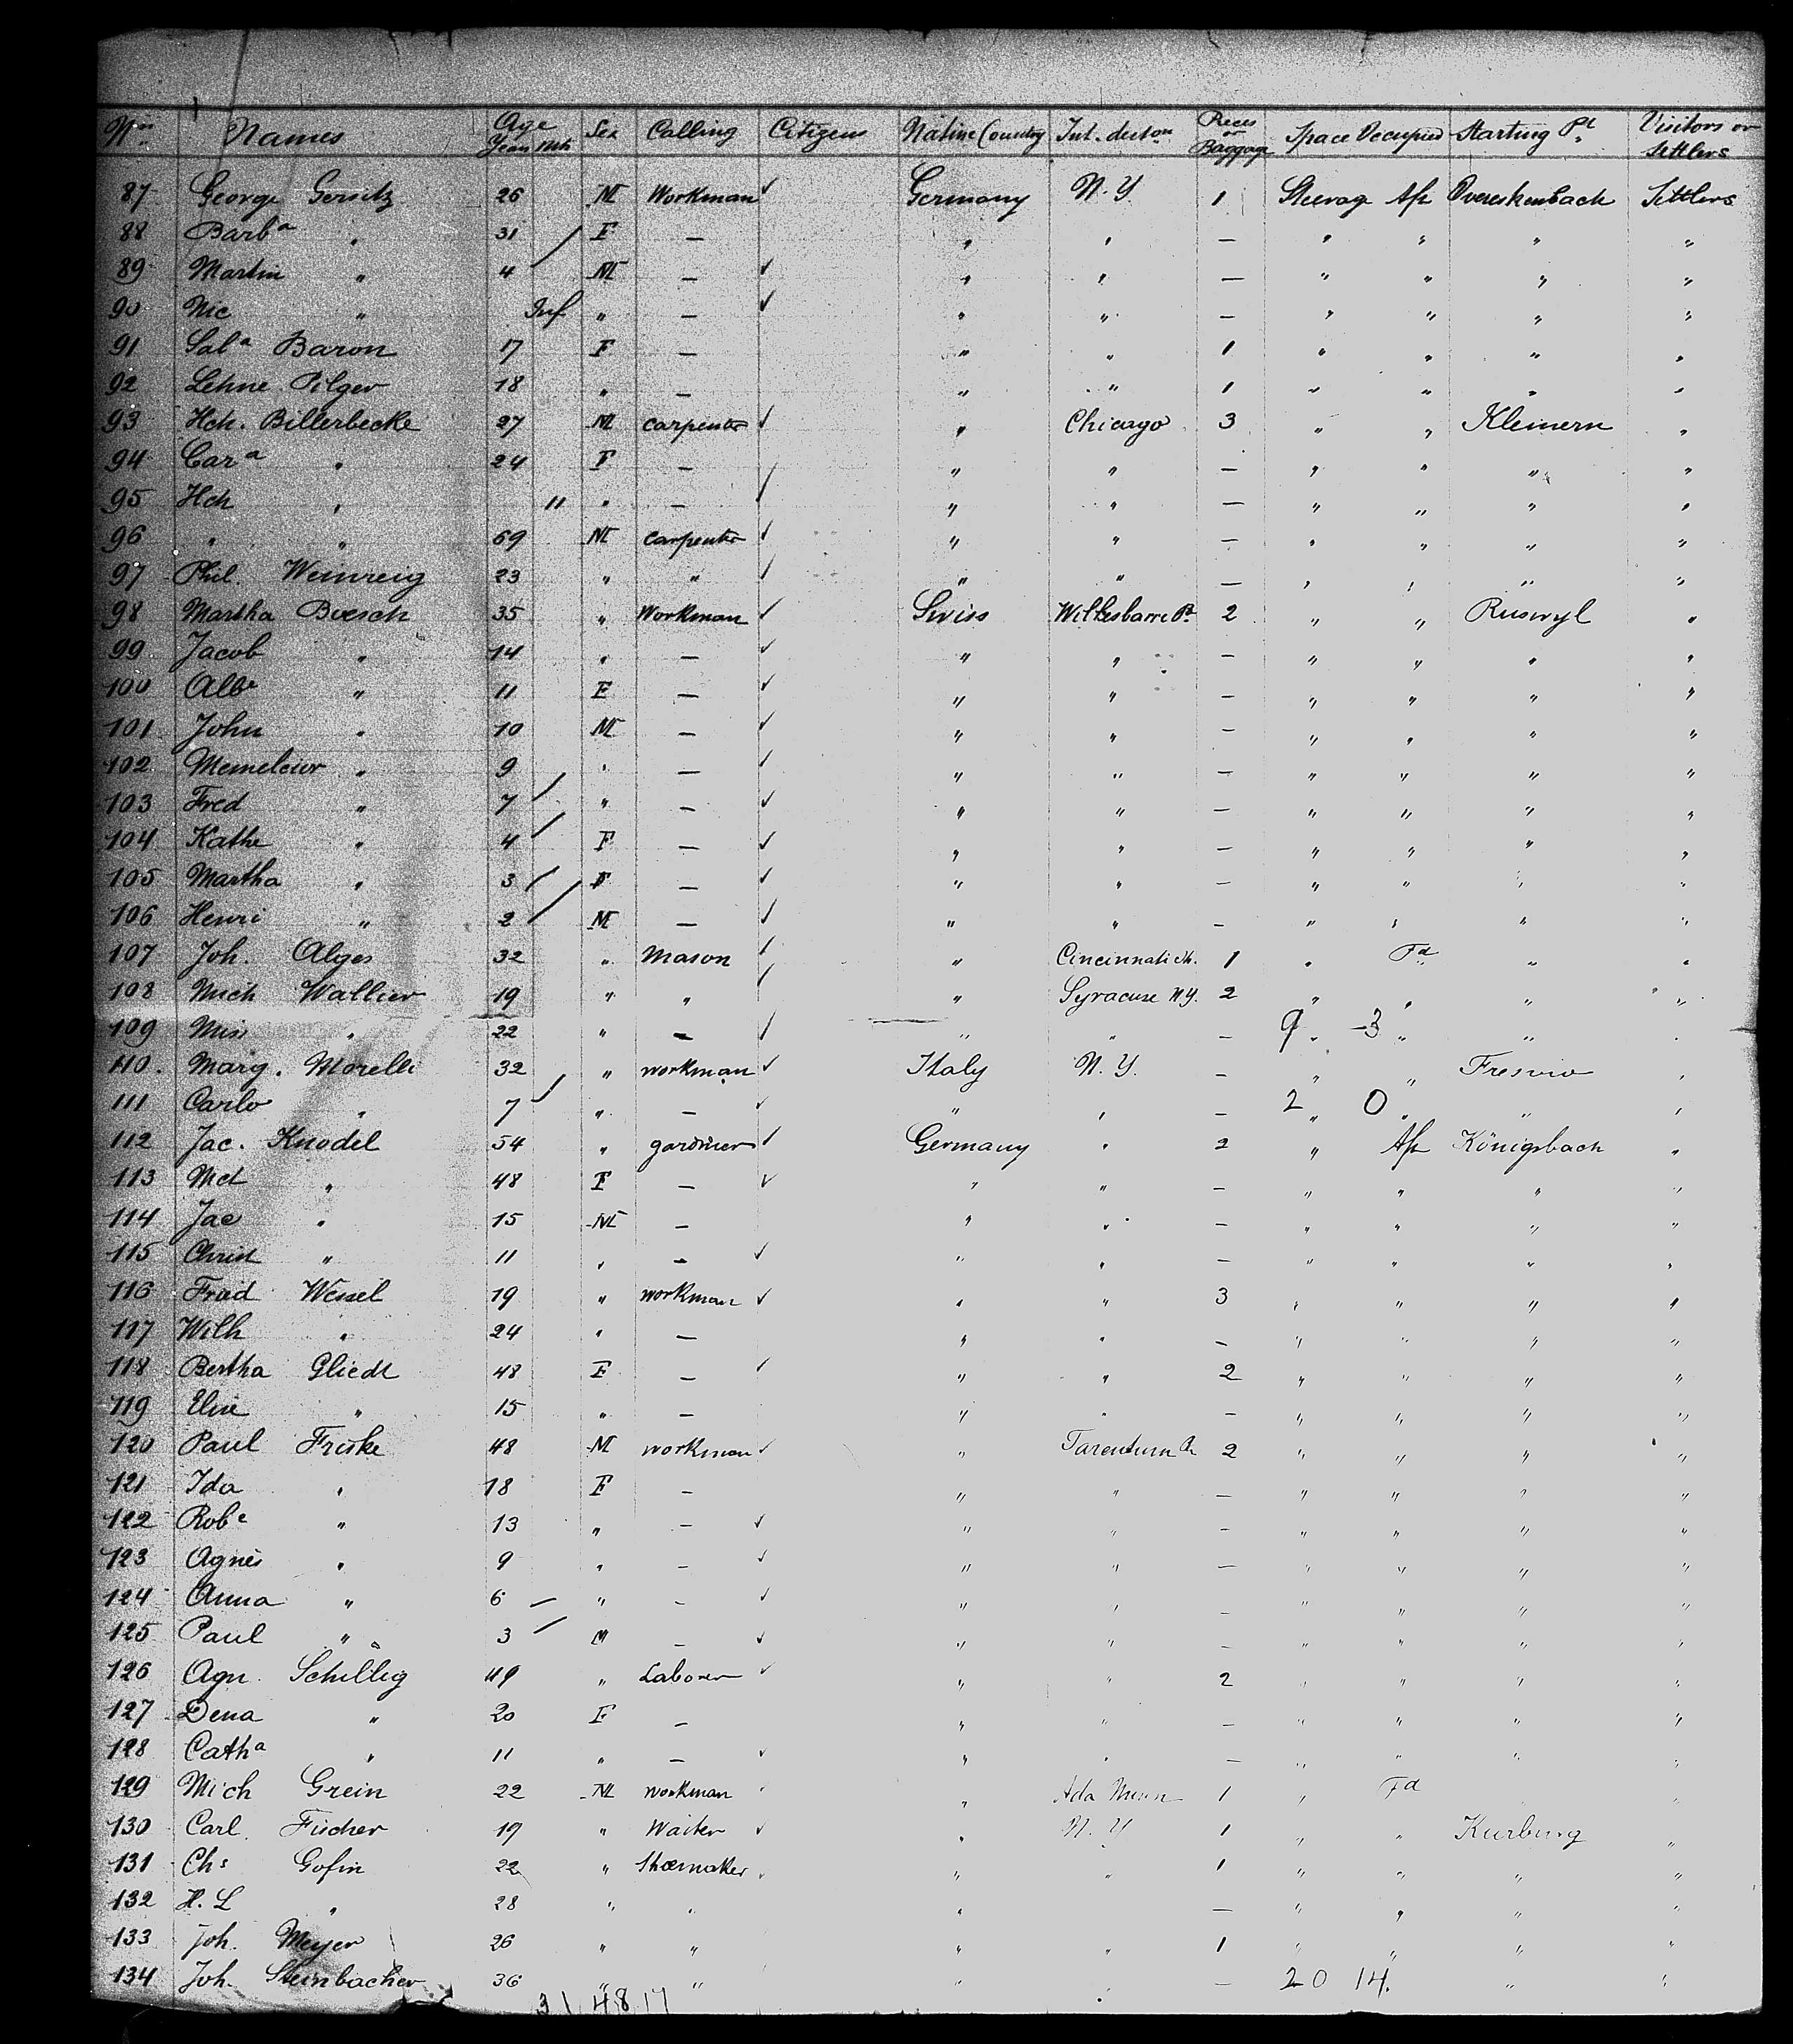 No. Names Age Years Mth Sex Calling Citizens Native Country Int. deston Pieces or Baggage Space Occupied Starting Pt. Visitors or Settlers
87 George Gersitz 26 M Workman ✓ Germany N.Y. 1 Steerage Aft Settlers
88 Barba " 31 F — " " — " " " "
89 Martin " 4 M — ✓ " " — " " " "
90 Nic " Inf " — ✓ " " — " " " "
91 Sala Baron 17 F — " " 1 " " " "
92 Lehne Pilger 18 " — " " 1 " " " "
93 Hch. Billerbecke 27 M carpenter ✓ " Chicago 3 " " Kleinern "
94 Cara " 24 F — " " — " " " "
95 Hch " 11 " — ✓ " " — " " " "
96 " " 69 M carpenter ✓ " " — " " " "
97 Phil. Weinreig 23 " " ✓ " " — " " " "
98 Martha Boesch 35 " Workman ✓ Swiss Wilkesbarre Pa 2 " " Ruswyl "
99 Jacob " 14 " — ✓ " " — " " " "
100 Albe " 11 F — ✓ " " — " " " "
101 John " 10 M — ✓ " " — " " " "
102 " 9 " — ✓ " " — " " " "
103 Fred " 7 " — ✓ " " — " " " "
104 Kathe " 4 F — ✓ " " — " " " "
105 Martha " 3 F — ✓ " " — " " " "
106 Henri " 2 M — ✓ " " — " " " "
107 Joh. Alges 32 " Mason ✓ " Cincinnati Oh. 1 " Fd " "
108 Mich Wallier 19 " " ✓ " Syracuse N.Y. 2 " " " "
109 " 22 " — ✓ " " — 9 " 3 " " "
110 Marg. Morelli 32 " workman ✓ Italy N.Y. — " " "
111 Carlo " 7 " — ✓ " " — 2 " 0 " " "
112 Jac. Knodel 54 " gardiner ✓ Germany " 2 " Aft Königsbach "
113 Mct " 48 F — ✓ " " — " " " "
114 Jac " 15 M — " " — " " " "
115 Christ " 11 " — ✓ " " — " " " "
116 Fried Wessel 19 " workman ✓ " " 3 " " " "
117 Wilh " 24 " — " " — " " " "
118 Bertha Gliedt 48 F — ✓ " " 2 " " " "
119 Elise " 15 " — " " — " " " "
120 Paul Friske 48 M workman ✓ " Tarentum Pa 2 " " " "
121 Ida " 18 F — " " — " " " "
122 Robe " 13 " — ✓ " " — " " " "
123 Agnes " 9 " — ✓ " " — " " " "
124 Anna " 6 " — ✓ " " — " " " "
125 Paul " 3 M — ✓ " " — " " " "
126 Agn. Schillig 49 " Laborer ✓ " " 2 " " " "
127 Dena " 20 F — " " — " " " "
128 Catha " 11 " — ✓ " " — " " " "
129 Mich Grein 22 M workman " Ada Minn 1 " Fd "
130 Carl Fischer 19 " Waiter ✓ " N.Y 1 " " Kurburg "
131 Chs Gofin 22 " Shoemaker " " 1 " " " "
132 H. L " 28 " " " — " " " "
133 Joh. Meyer 26 " " " " 1 " " " "
134 Joh. Steinbacher 36 " " " " — 20 14. " "
31 48 17